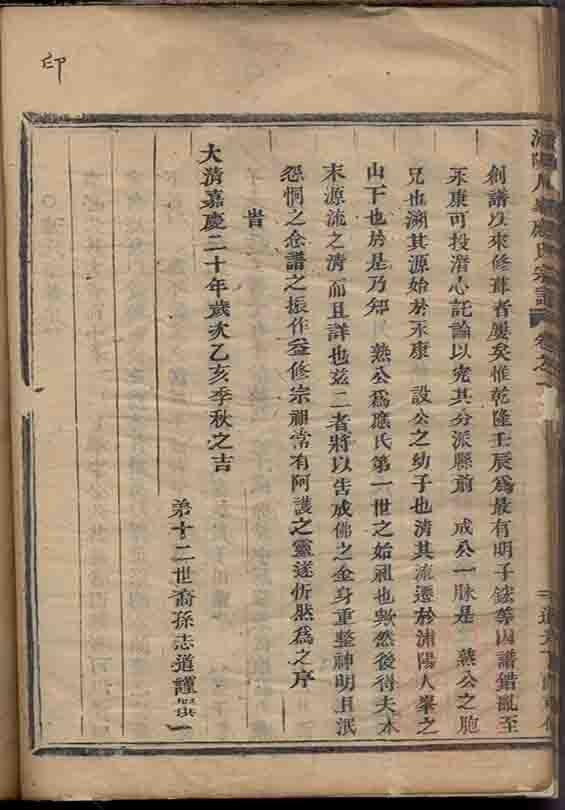 印
氏宗譜
卷之一
創譜以來修葺者屢矣惟乾隆壬辰為最有明子鋐等因譜錯亂至
永康可投潛心託論以究其分派縣前 成公一脉是 熟公之胞
兄也溯其源始於永康 設公之幼子也清其流遷於浦陽人峯之
山下也於是乃知 熟公為應氏第一世之始祖也歟然後得夫本
末源流之清而且詳也茲二者將以告成佛之金身重整神明且泯
怨恫之念譜之振作益修宗祖常有阿護之靈遂忻然為之序
旹
大清嘉慶二十年歲次乙亥季秋之吉
第十二世裔孫志道謹撰